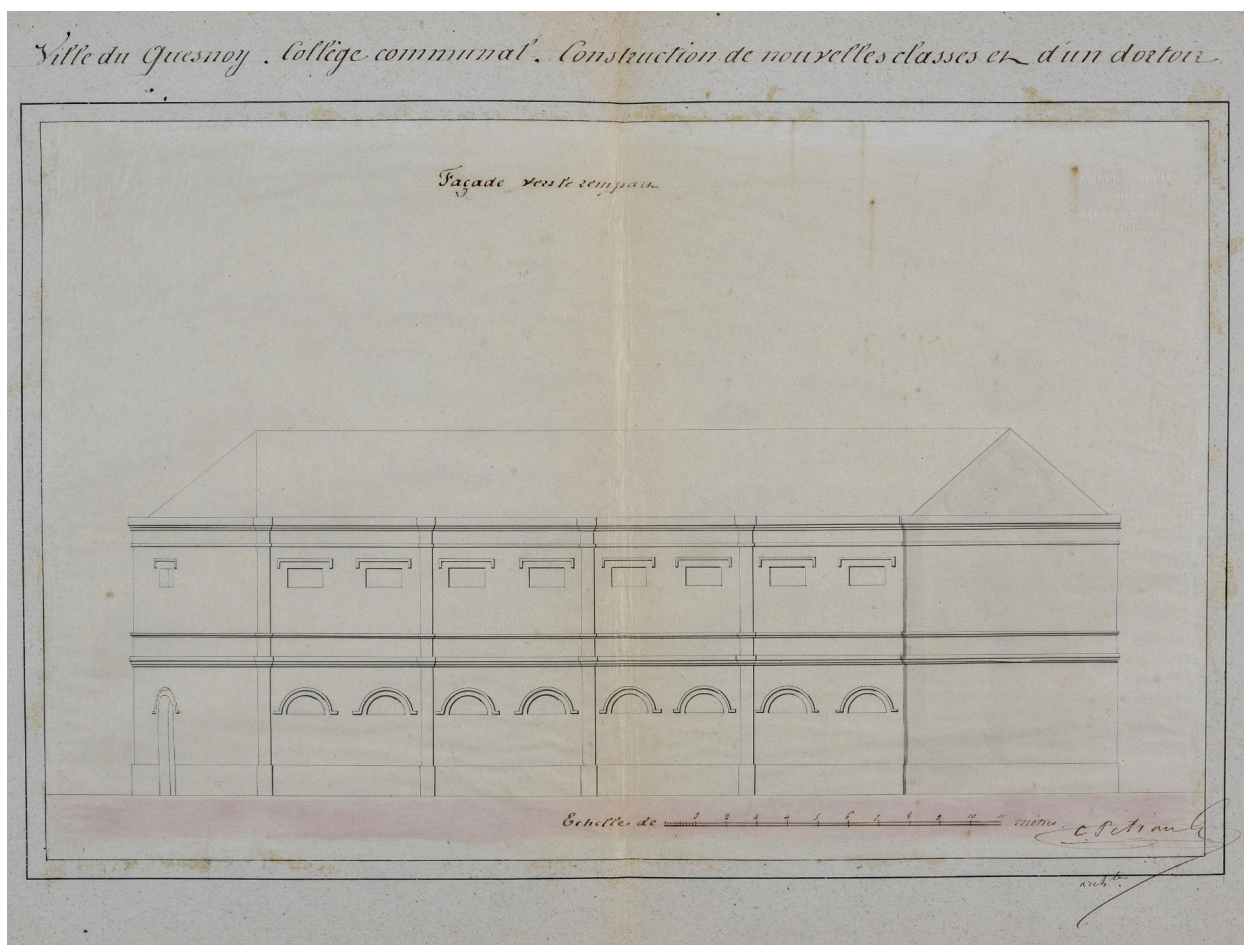 Ville du Quesnoy . Collège communal . Construction de nouvelles classes et d'un dortoir.
Façade vers le rempart
Echelle de 1 2 3 4 5 6 7 8 9 10 11 mètres
archte